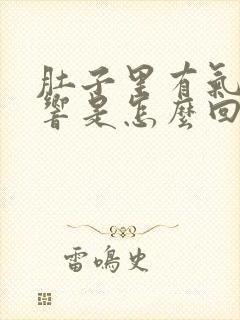 肚子里有氣
響是怎麼回
雷鳴史